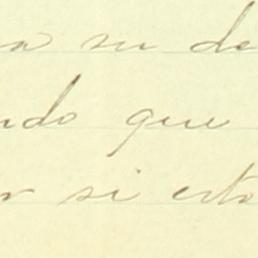 a su de
ndo que
r si esto